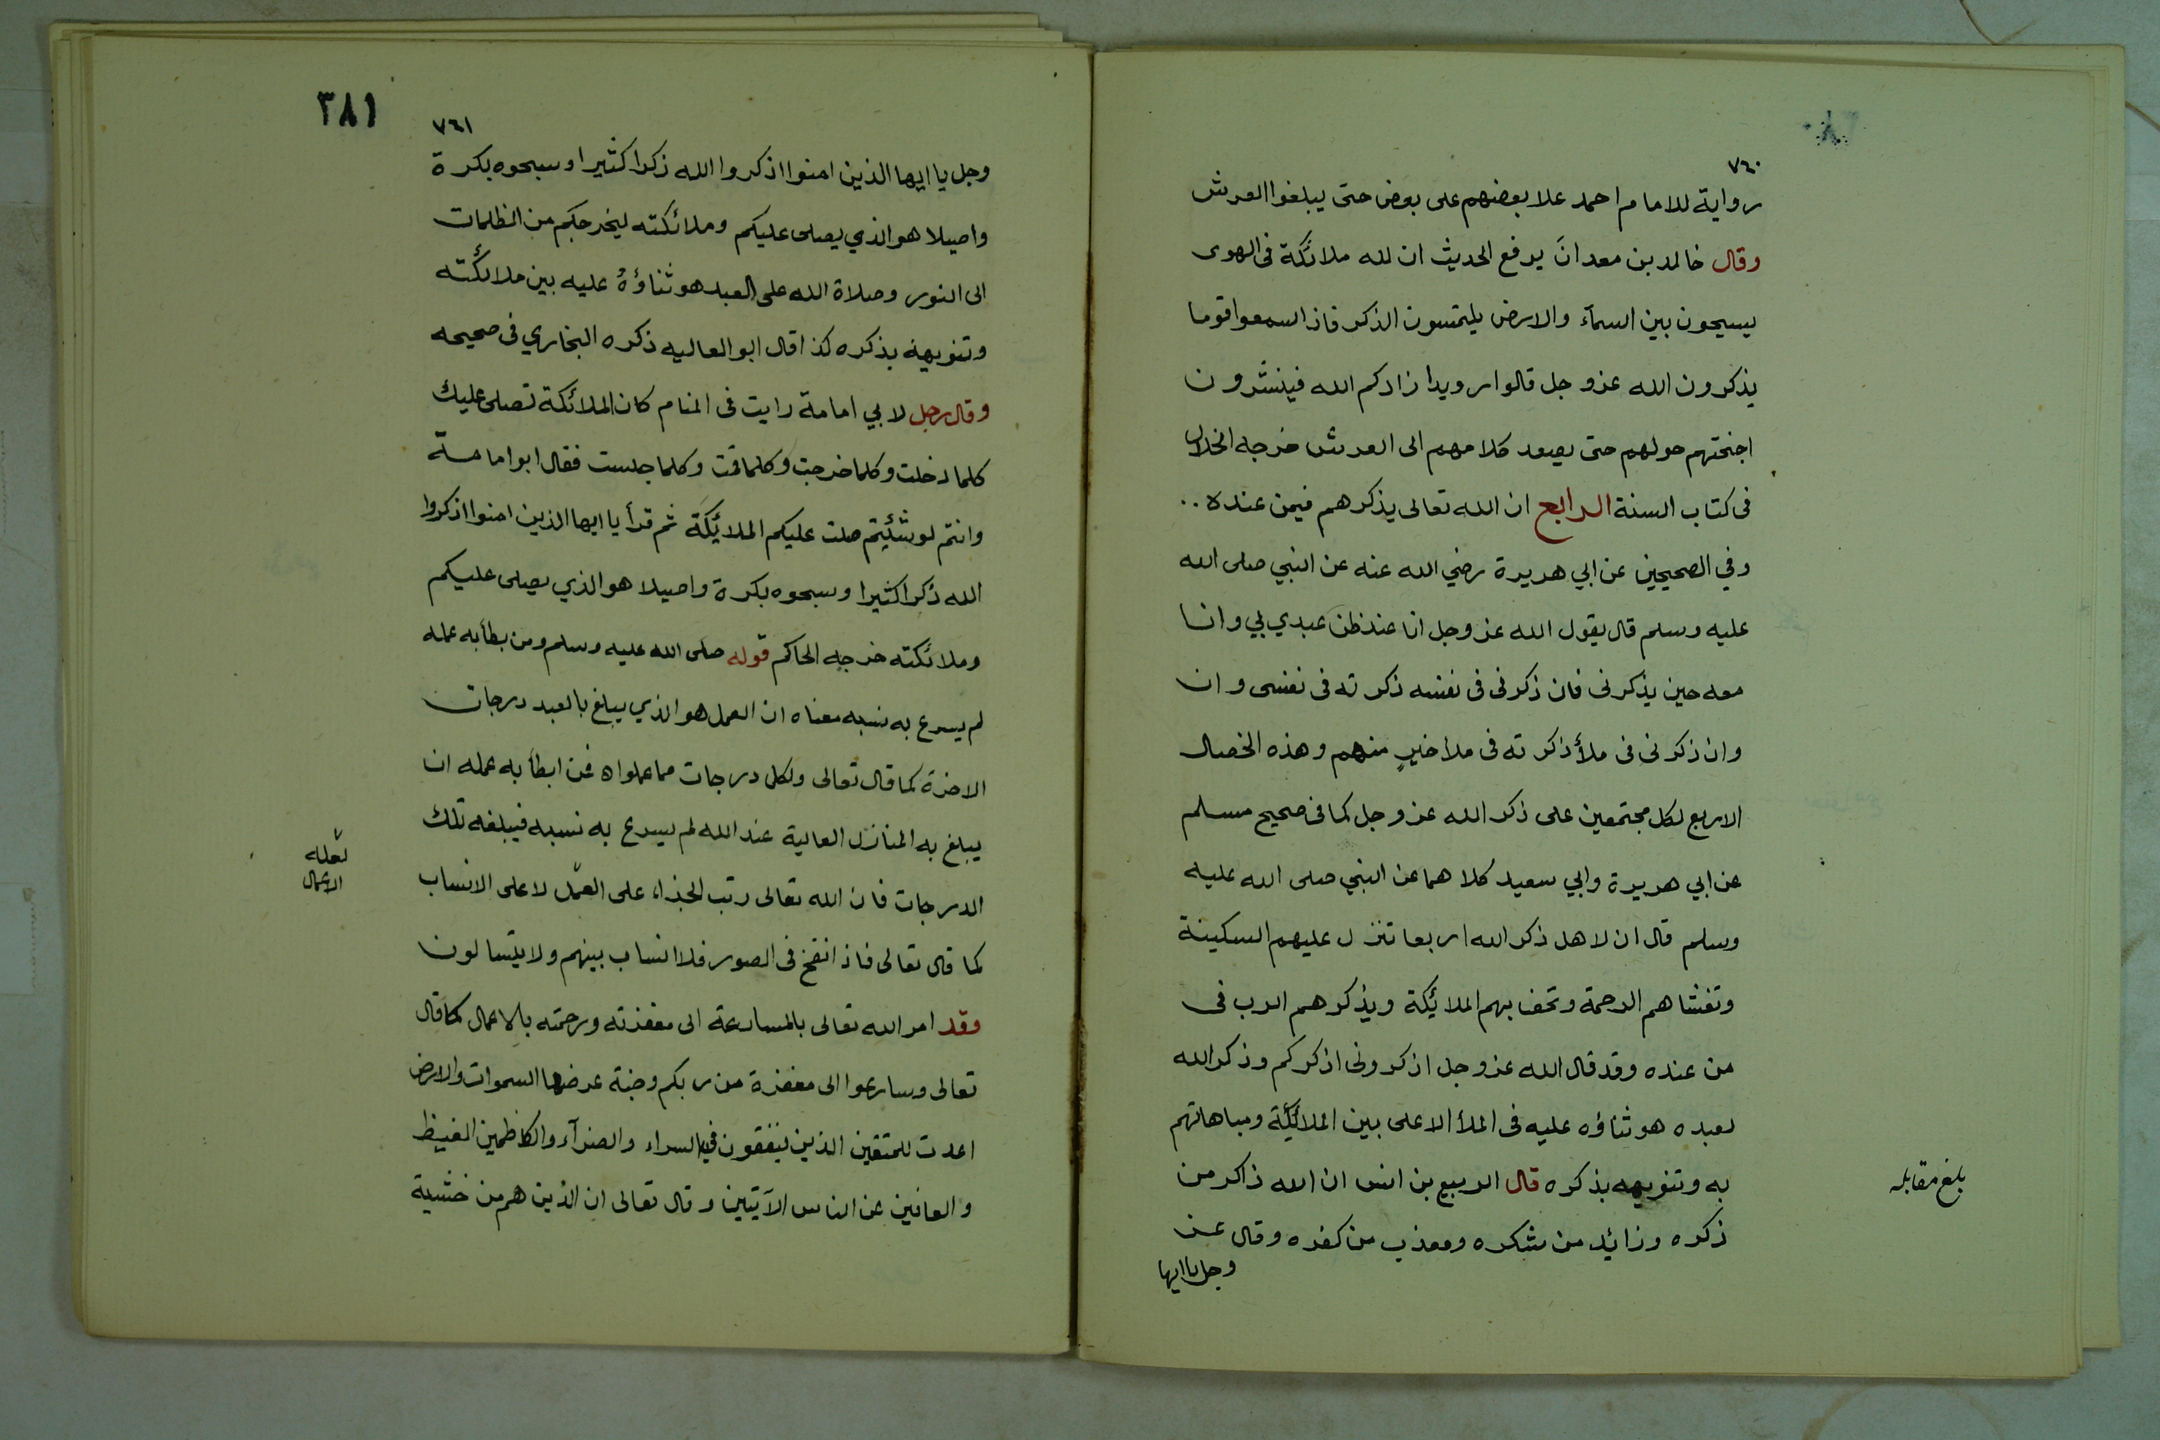 ٧٦٠
رواية للامام احمد علا بعضهم على بعض حتى يبلغوا العرش
وقال خالد بن معدانَ يرفع الحديث ان لله ملائكة فى الهوى
يسيحون بين السمآء والارض يلتمسون الذكر فاذا سمعوا قوما
يذكرون الله عزوجل قالوا رويدا زادكم الله فينشرون
اجنحتهم حولهم حتى يصعد كلامهم الى العرش خرجه الخلال
فى كتاب السنة الرابع ان الله تعالى يذكرهم فيمن عنده ..
وفي الصحيحين عن ابي هريرة رضي الله عنه عن النبي صلى الله
عليه وسلم قال يقول الله عز وجل انا عند ظن عبدي بي وانا
معه حين يذكرنى فان ذكرنى فى نفسه ذكرته فى نفسى وان
وان ذكرنى فى ملأ ذكرته فى ملا خيرٍ منهم وهذه الخصال
الاربع لكل مجتمعين على ذكر الله عز وجل كما فى صحيح مسلم
عن ابي هريرة وابي سعيد كلاهما عن النبي صلى الله عليه
وسلم قال ان لاهل ذكر الله اربعا تنزل عليهم السكينة
وتغشاهم الرحمة وتحف بهم الملائكة ويذكرهم الرب فى
من عنده وقد قال الله عز وجل اذكرونى اذكركم وذكر الله
لعبده هو ثناؤه عليه فى الملأ الاعلى بين الملائكة ومباهاتهم
به وتنويهه بذكره قال الربيع بن انس ان الله ذاكر من
ذكره وزائد من شكره ومعذب من كفره وقال عز
وجل يا ايها
بلغ مقابله
٣٨١
٧٦١
وجل يا ايها الذين امنوا اذكروا الله ذكرا كثيرا وسبحوه بكرة
واصيلا هو الذي يصلى عليكم وملائكته ليخرجكم من الظلمات
الى النور وصلاة الله على العبد هو ثناؤهُ عليه بين ملائكته
وتنويهه بذكره كذا قال ابو العاليه ذكره البخاري فى صحيحه
وقال رجل لابي امامة رايت فى المنام كان الملائكة تصلى عليك
كلما دخلت وكلما خرجت وكلما قمت وكلما جلست فقال ابو امامة
وانتم لو شئتم صلت عليكم الملائكة ثم قرأ يا ايها الذين امنوا اذكروا
الله ذكرا كثيرا وسبحوه بكرة واصيلا هو الذي يصلى عليكم
وملائكته خرجه الحاكم قوله صلى الله عليه وسلم ومن بطأ به عمله
لم يسرع به نسبه معناه ان العمل هو الذي يبلغ بالعبد درجات
الاخرة كما قال تعالى ولكل درجات مما عملوا فمن ابطأ به عمله ان
يبلغ به المنازل العالية عند الله لم يسرع به نسبه فيبلغه تلك
الدرجات فان الله تعالى رتب الجزاء على العمل لا على الانساب
كما قال تعالى فاذا نفخ فى الصور فلا انساب بينهم ولا يتسالون
وقد امر الله تعالى بالمسارعة الى مغفرته ورحمته بالاعمال كما قال
تعالى وسارعوا الى مغفرة من ربكم وجنة عرضها السموات والارض
اعدت للمتقين الذين ينفقون في السراء والضرآء والكاظمين الغيظ
والعافين عن الناس الآيتين وقال تعالى ان الذين هم من خشية
لعله
الاعمال